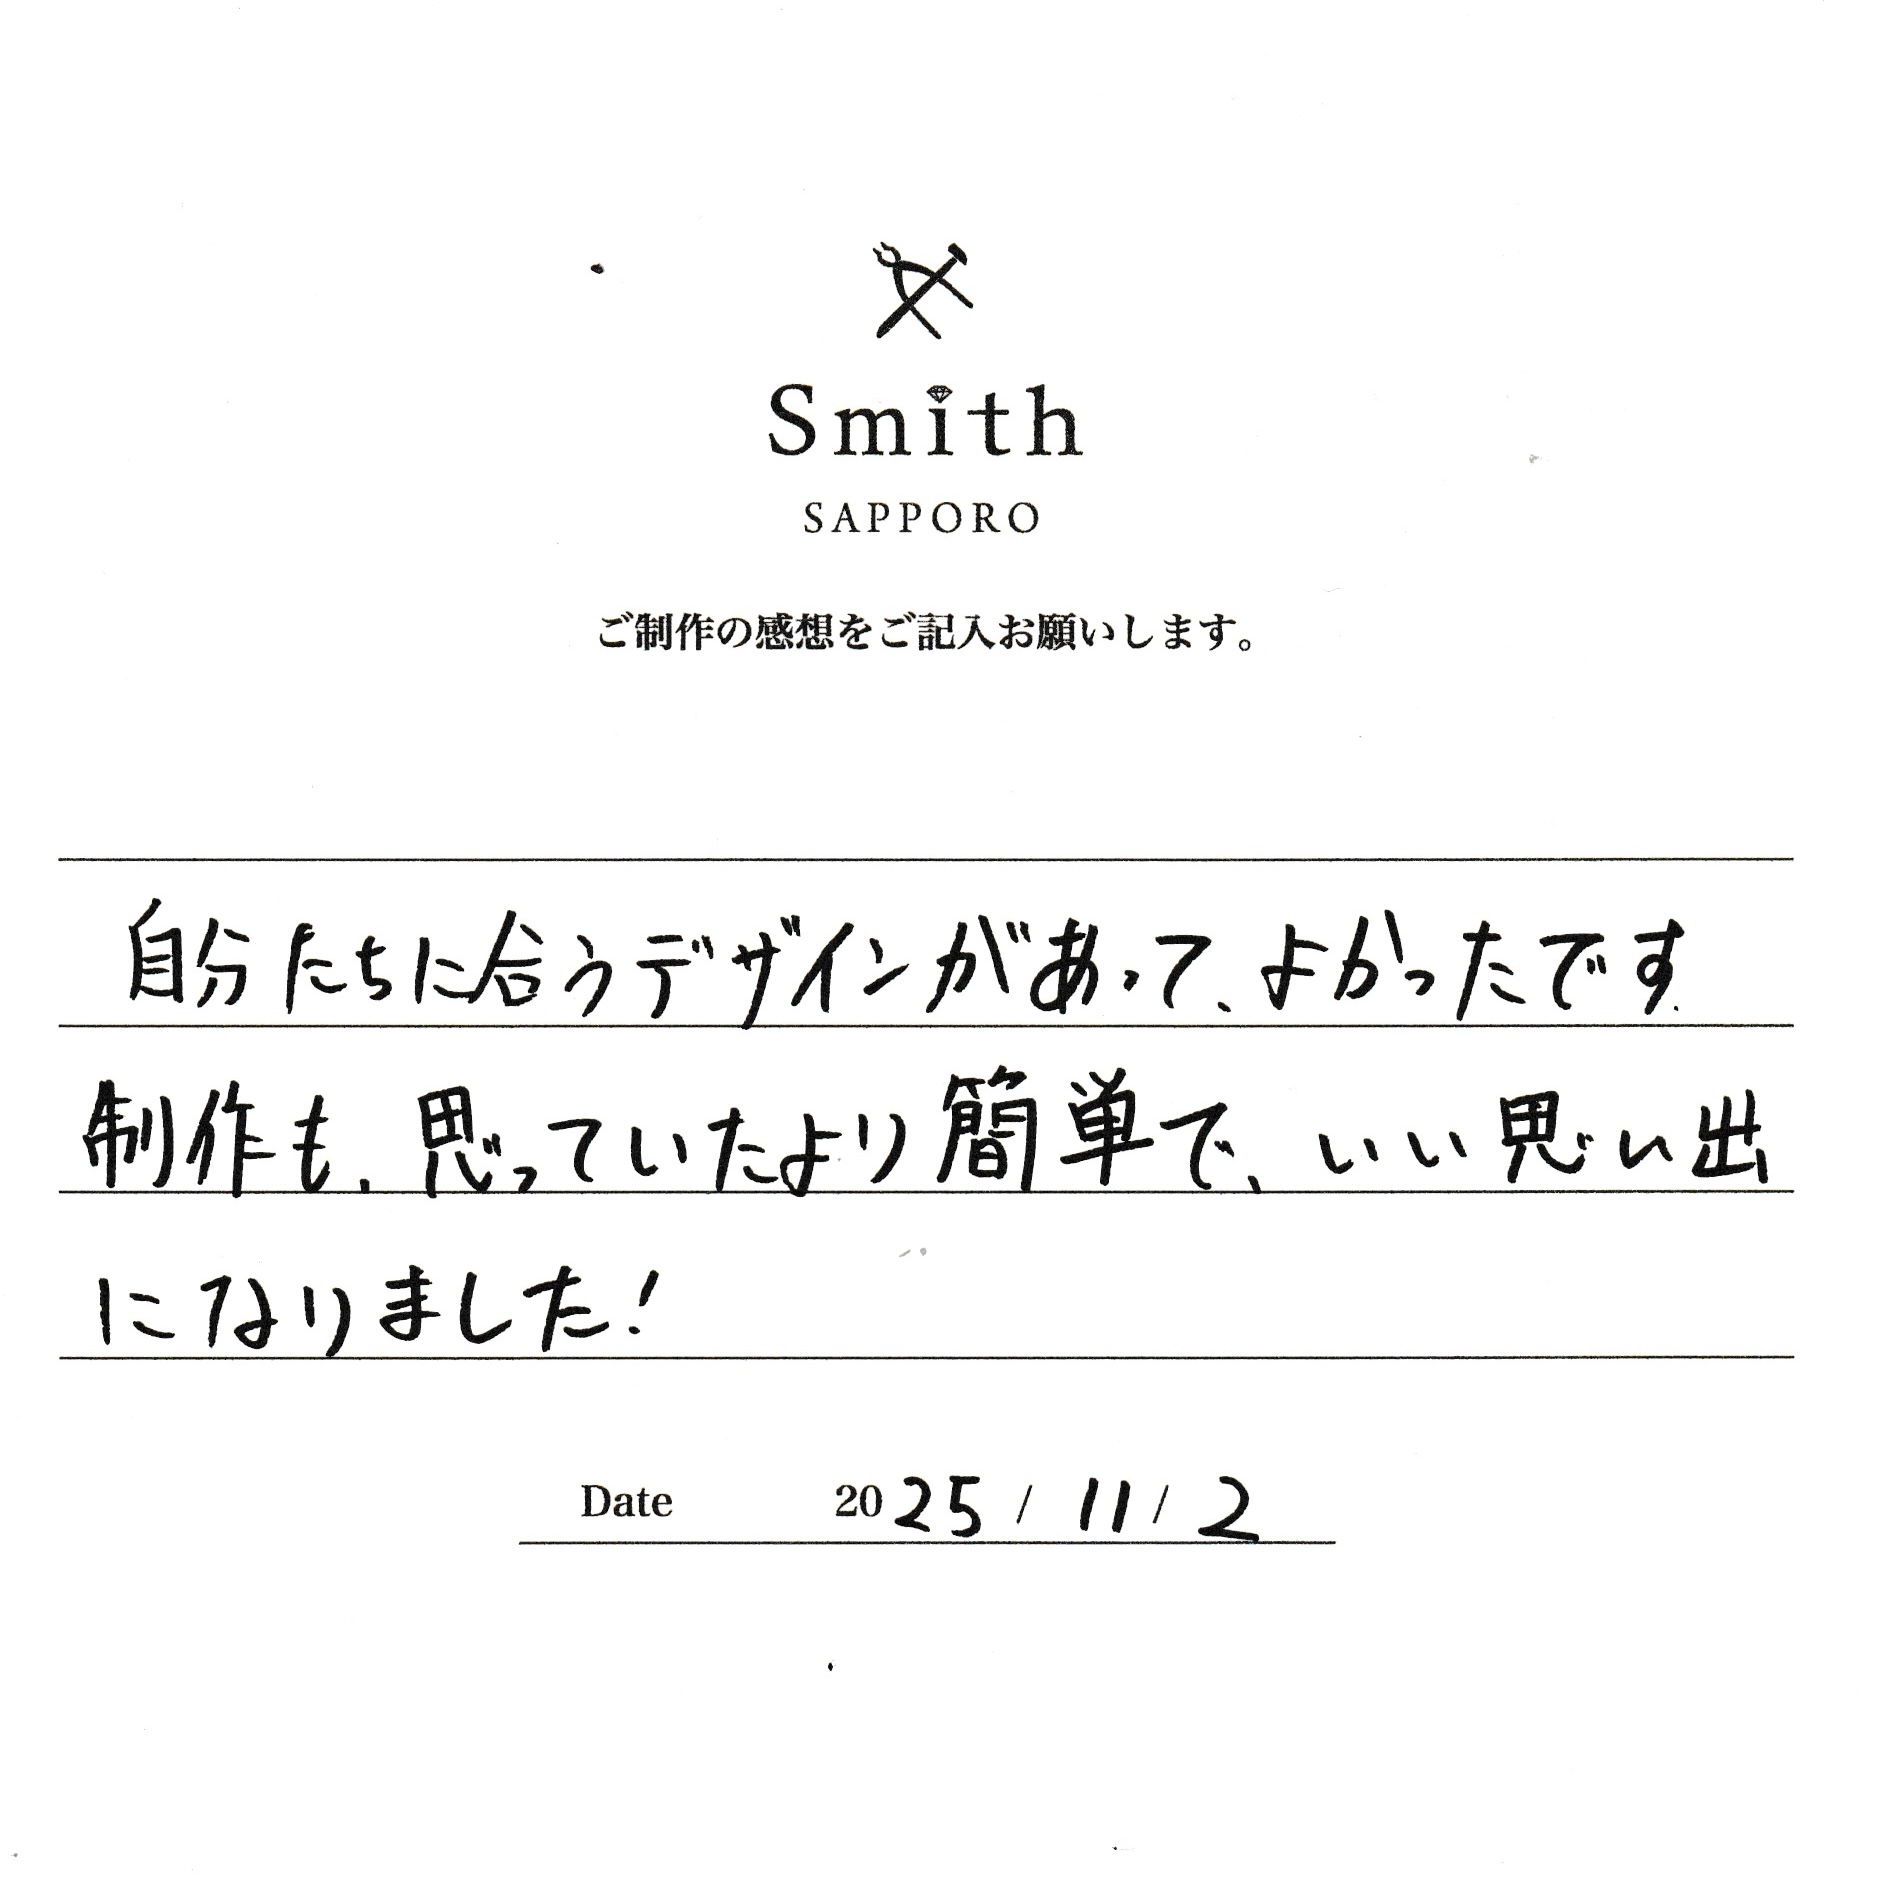 Smith
SAPPORO
ご制作の感想をご記入お願いします。
自分たちに合うデザインがあって、よかったです.
制作も、思っていたより簡単で、いい思い出
になりました!
Date 2025 / 11 / 2